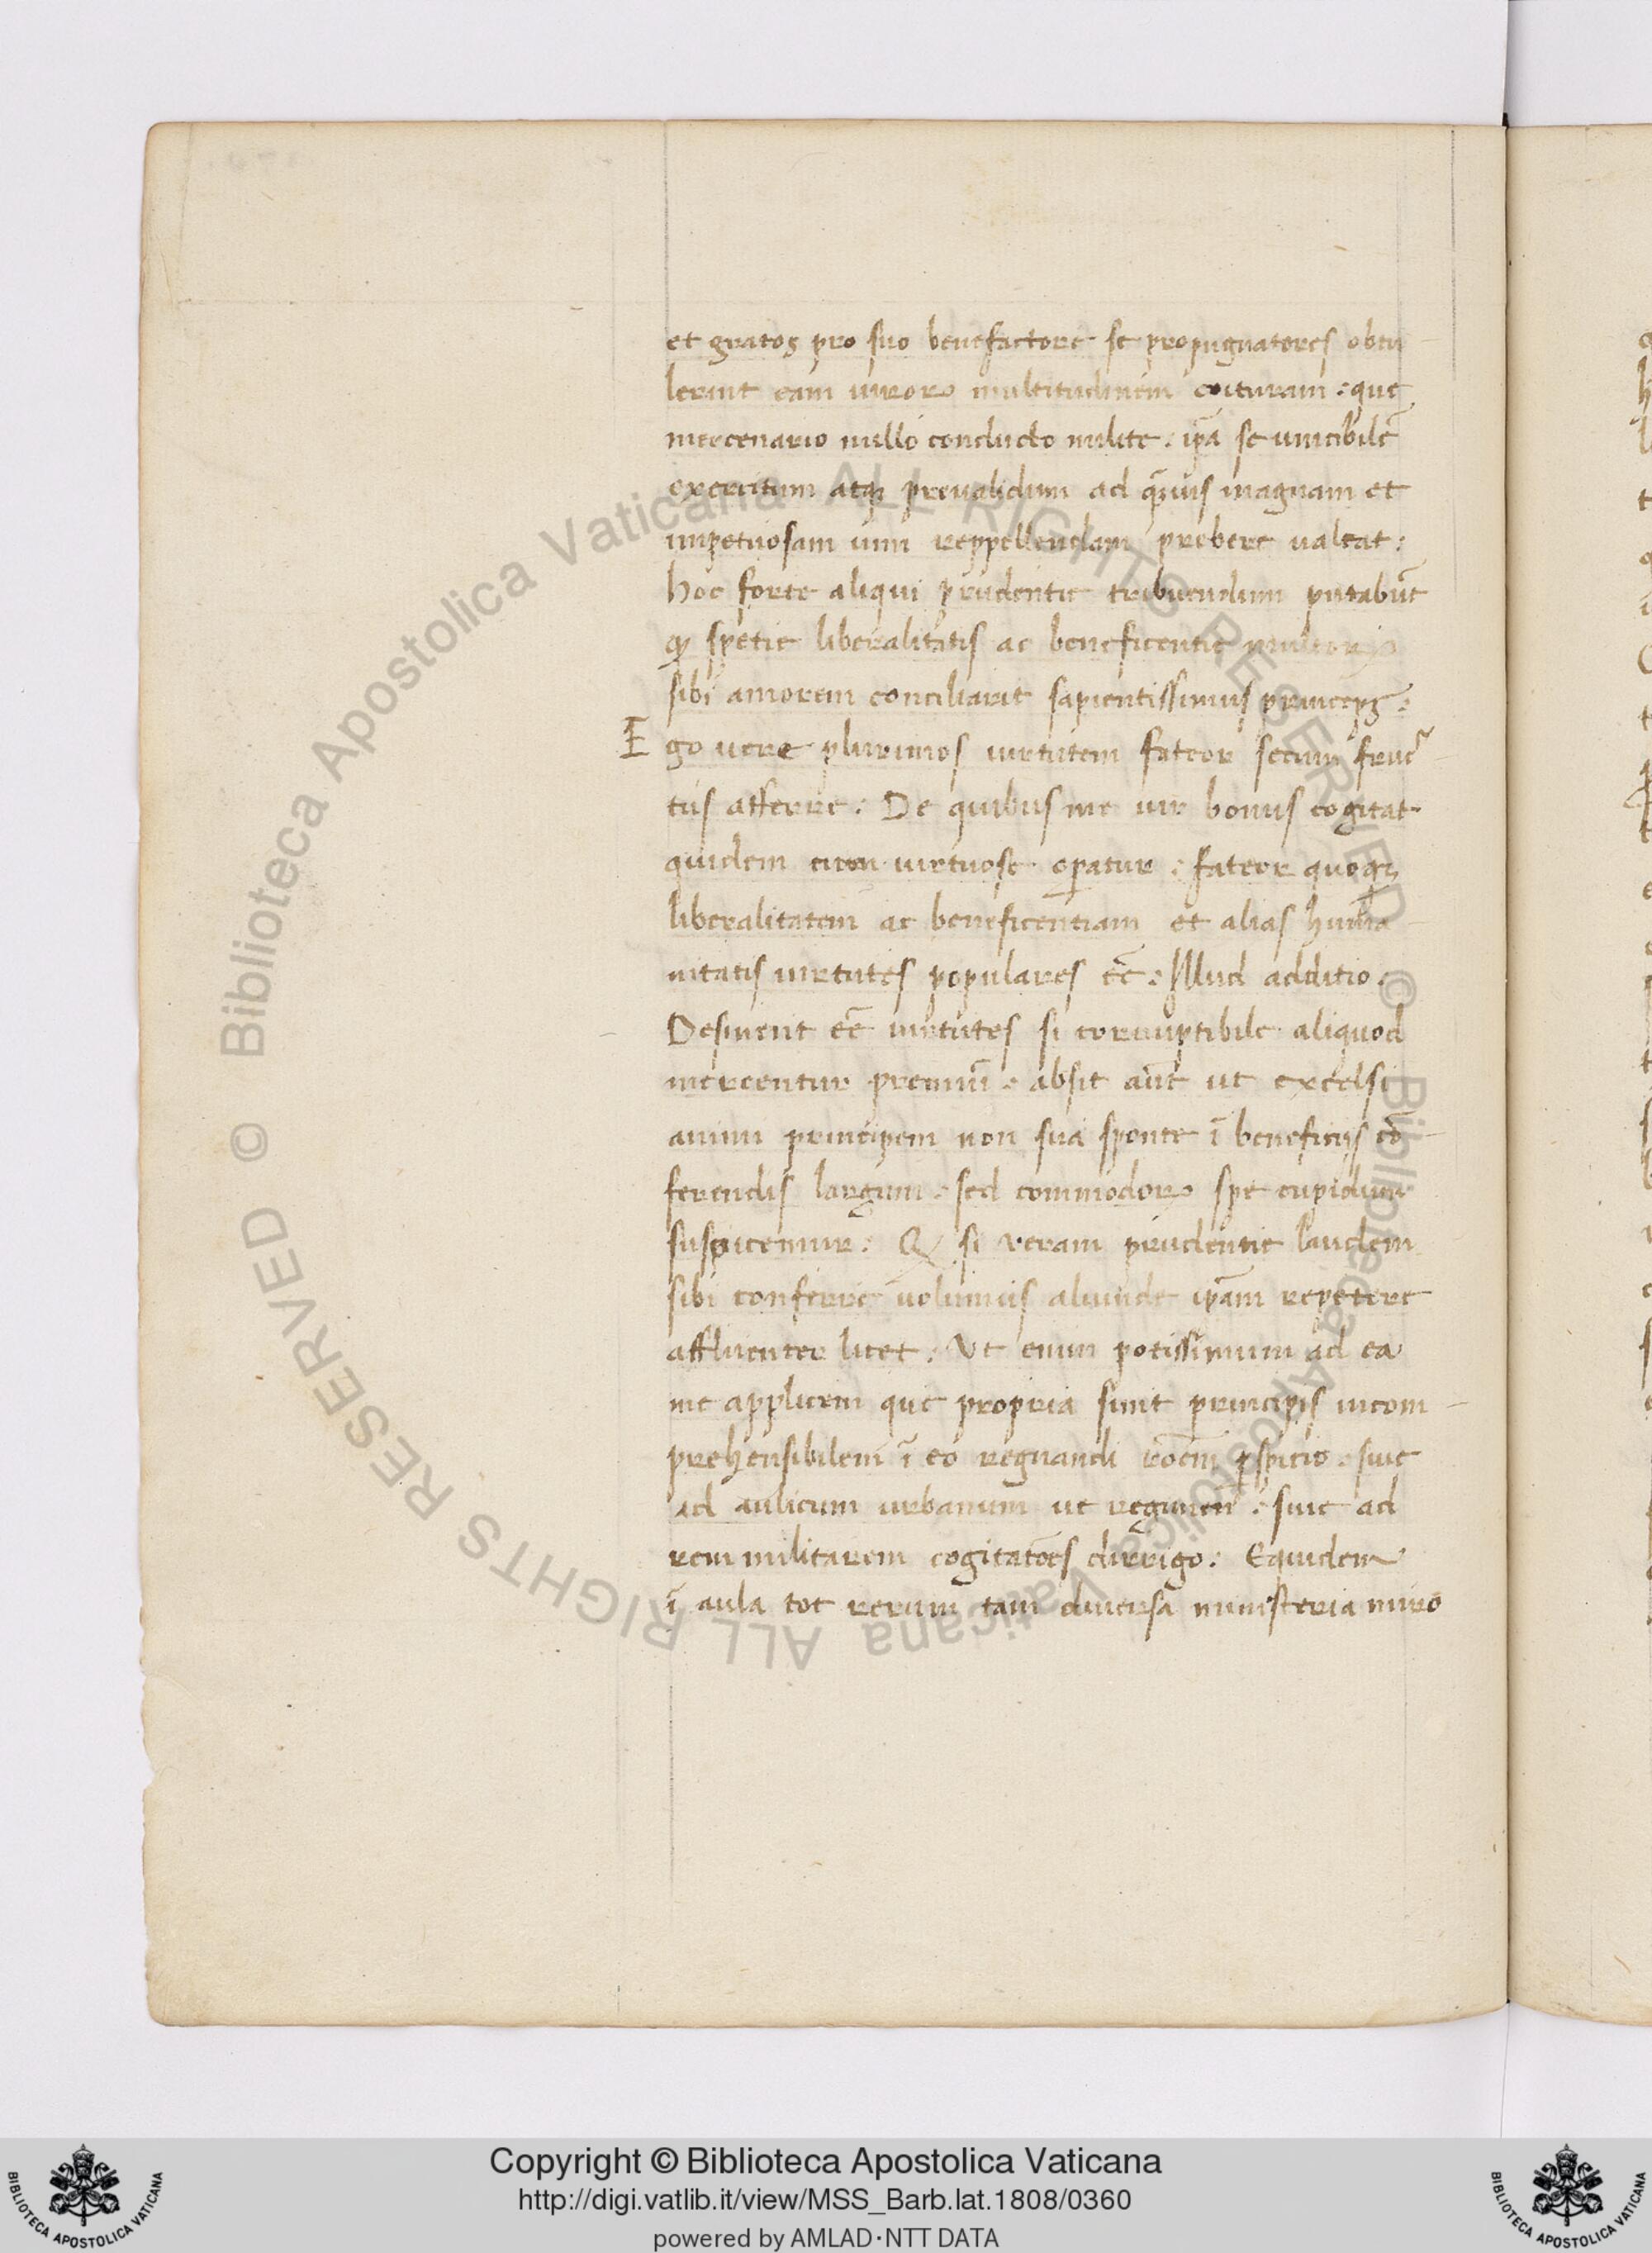 et gratos pro suo benefactore se propugnatores obtu
lerint eam uiroꝝ multitudinem coituram : que
mercenario nullo conducto milite . ip̄a se uincibilē
exercitum atqꝫ preualidum ad q̄uis magnam et
impetuosam uim reppellendam prebere ualeat :
hoc forte aliqui prudentie tribuendum putabūt
ꝙ spetie liberalitatis ac beneficentie multoꝝ
sibi amorem conciliarit sapientissimus princeps :
Ego uere plurimos uirtutem fateor secum fruc
tus afferre : De quibus ne uir bonus cogitat
quidem cum uirtuose operatur : fateor quoqꝫ
liberalitatem ac beneficentiam et alias huma
nitatis uirtutes populares eē : Illud additio .
Desinent eē uirtutes si corruptibile aliquod
mercentur premiū . absit aūt ut excelsi
animi principem non sua sponte ī beneficijs cō
ferendis largum . sed commodoꝝ spe cupidum
suspicemur : Qꝫ si veram prudentie laudem
sibi conferre uolumus aliunde ip̄am repetere
affluenter licet : Vt enim potissimum ad ea
me applicem que propria sunt principis incom
prehensibilem ī eo regnandi rōem ꝑspicio . siue
ad aulicum urbanum ue regimen : siue ad
rem militarem cogitatōes dirrigo : Equidem
ī aula tot rerum tam diuersa ministeria miro
Copyright © Biblioteca Apostolica Vaticana
http://digi.vatlib.it/view/MSS_Barb.lat.1808/0360
powered by AMLAD·NTT DATA
BIBLIOTECA APOSTOLICA VATICANA
BIBLIOTECA APOSTOLICA VATICANA
© Biblioteca Apostolica Vaticana ALL RIGHTS RESERVED
© Biblioteca Apostolica Vaticana ALL RIGHTS RESERVED